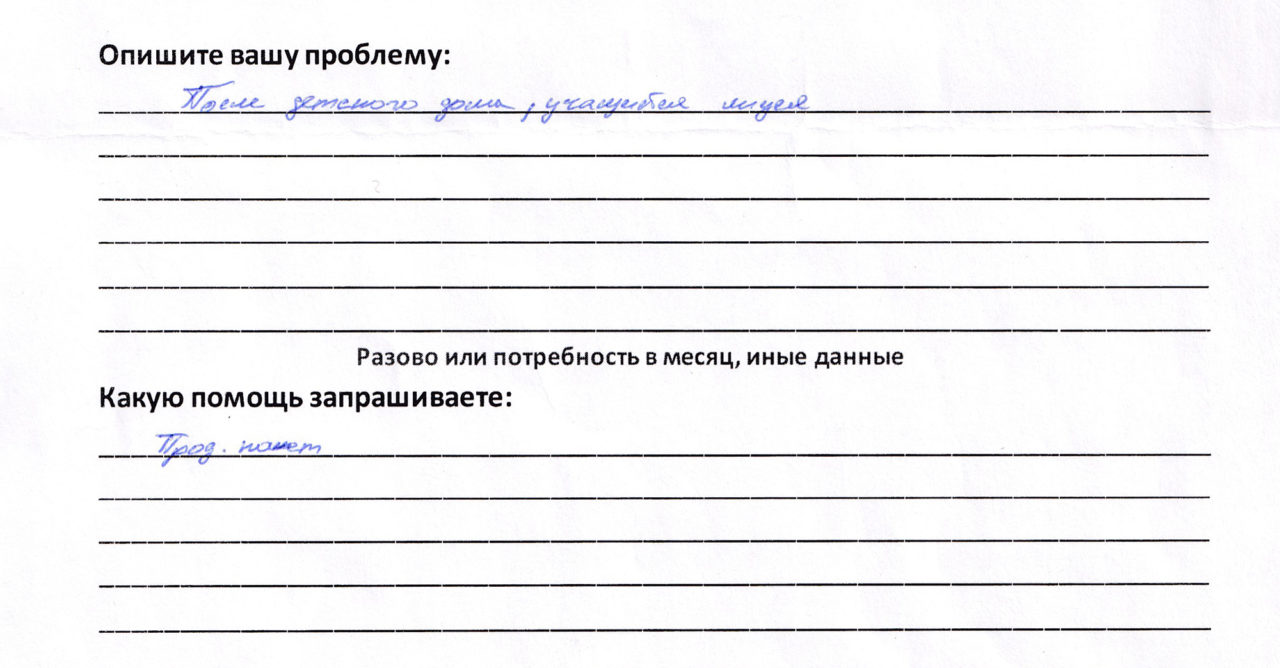 Опишите вашу проблему:
После детского дома, учащийся лицея
Разово или потребность в месяц, иные данные
Какую помощь запрашиваете:
Прод. пакет